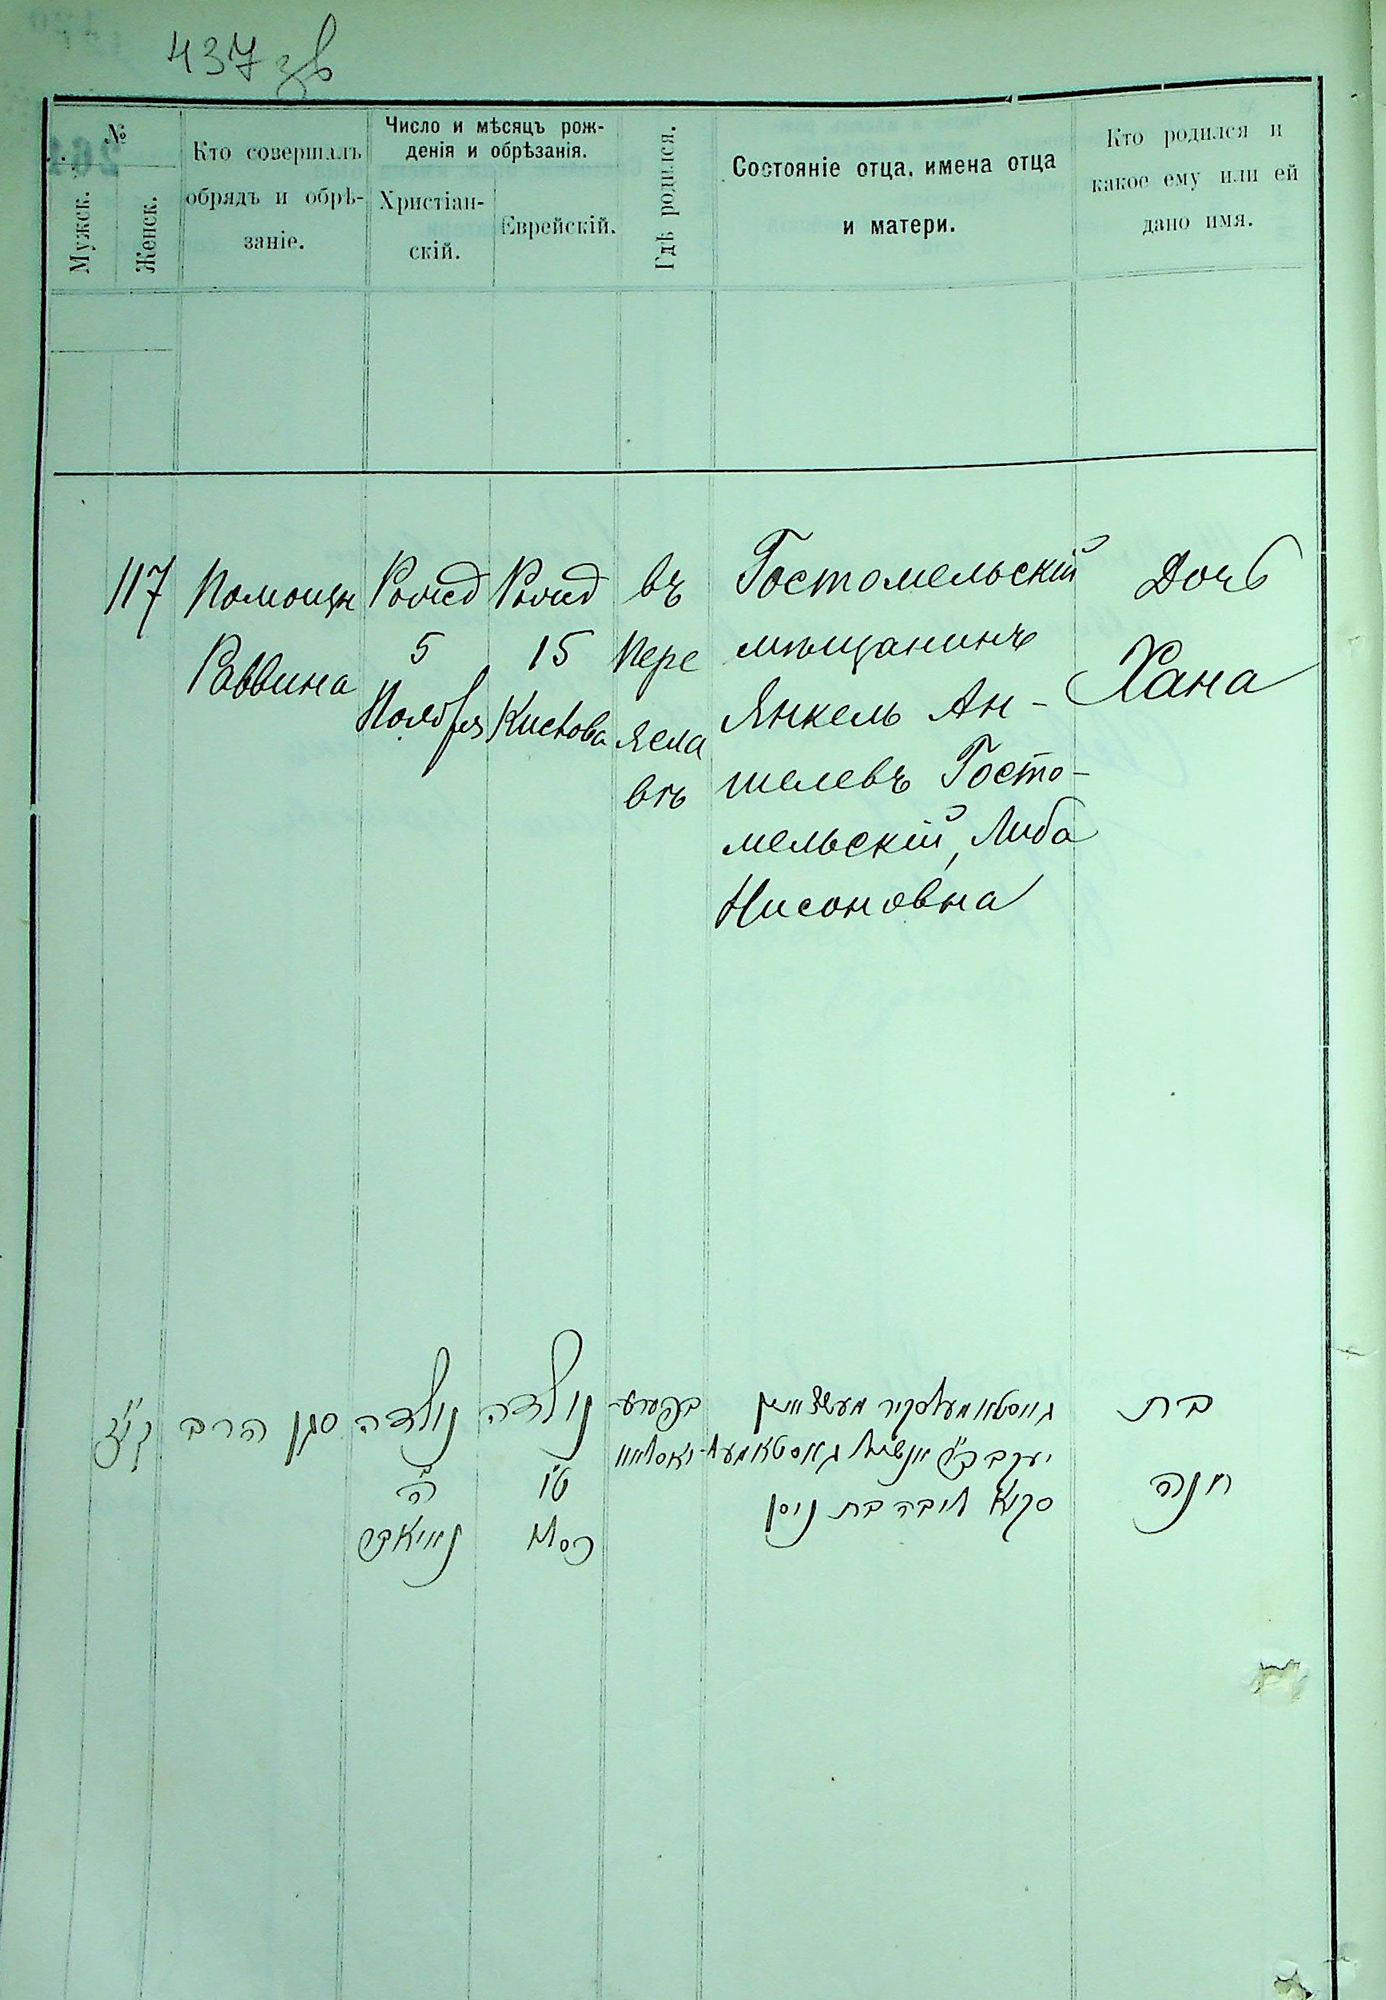 437 зв
№
Мужск.
Женск.
Кто совершалъ
обрядъ и обрѣ-
заніе.
Число и мѣсяцъ рож-
денія и обрѣзанія.
Христіан-
скій.
Еврейскій.
Гдѣ родился.
Состояніе отца, имена отца
и матери.
Кто родился и
какое ему или ей
дано имя.
117
Помощн
Раввина
Рожд
5
Ноября
Рожд
15
Кислова
въ
Пере
ясла
вѣ
Гостомельскій
мѣщанинъ
Янкель Ан-
шелевъ Госто-
мельскій, Либа
Нисоновна
Дочь
Хана
קי"ז
סגן הרב
נולדה
ה'
נולדה
ט"ו
כסלו
יעקב
ליבה בת ניסן
בת
חנה